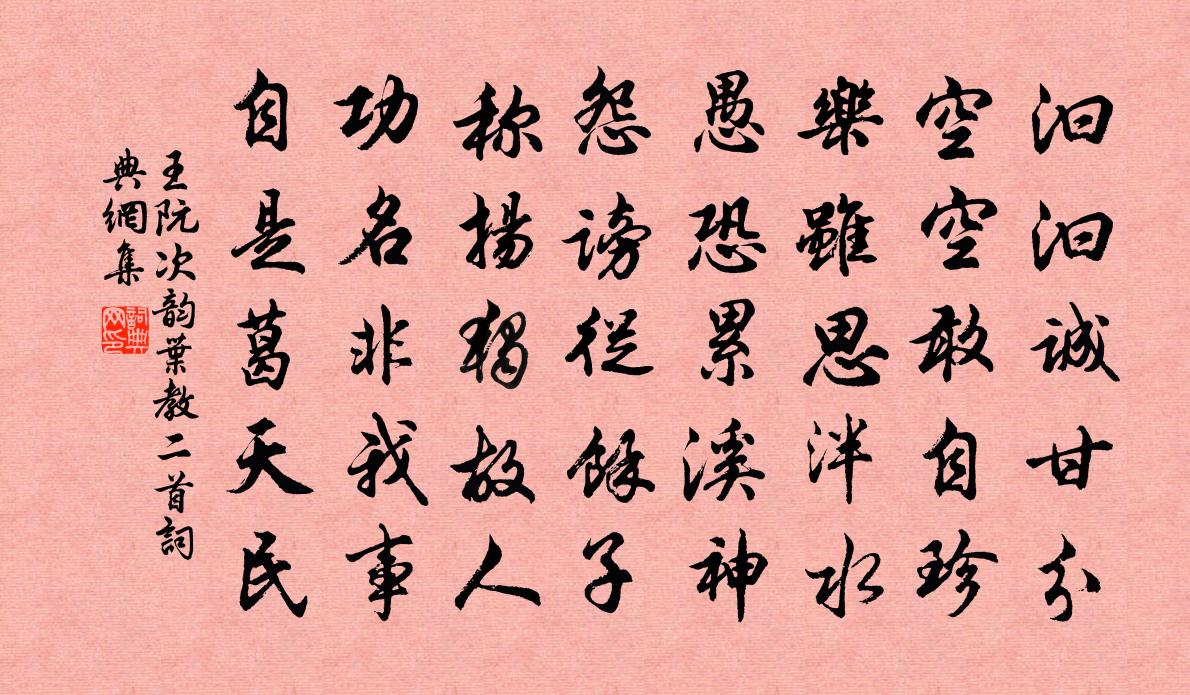 汩汩誠甘分
空空敢自珍
樂雖思泮水
愚恐累溪神
怨謗從餘子
称揚獨故人
功名非我事
自是葛天民
王阮次韵葉教二首詞
典網集
詞典网印